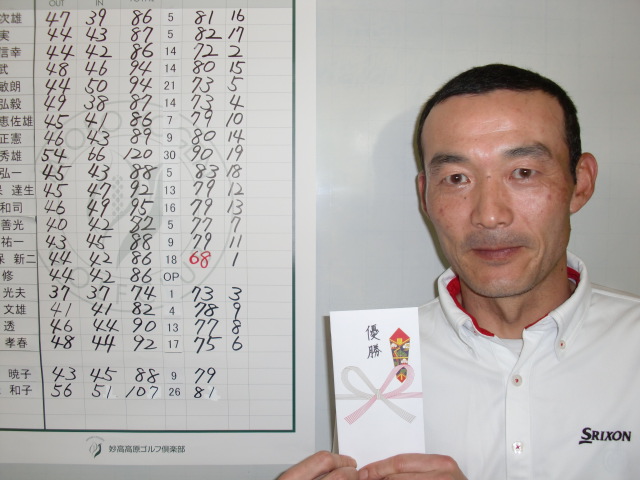 OUT IN
次雄 47 39 86 5 81 16
実 44 43 87 5 82 17
信幸 44 42 86 14 72 2
武 48 46 94 14 80 15
敏朗 44 50 94 21 73 5
弘毅 49 38 87 14 73 4
恵佐雄 45 41 86 7 79 10
正憲 46 43 89 9 80 14
秀雄 54 66 120 30 90 19
弘一 45 43 88 5 83 18
達生 45 47 92 13 79 12
和司 46 49 95 16 79 13
善光 40 42 82 5 77 7
祐一 43 45 88 9 79 11
保 新二 44 42 86 18 68 1
修 44 42 86 OP
光夫 37 37 74 1 73 3
文雄 41 41 82 4 78 9
透 46 44 90 13 77 8
孝春 48 44 92 17 75 6
暁子 43 45 88 9 79
和子 56 51 107 26 81
妙高高原ゴルフ倶楽部
優勝
SRIXON